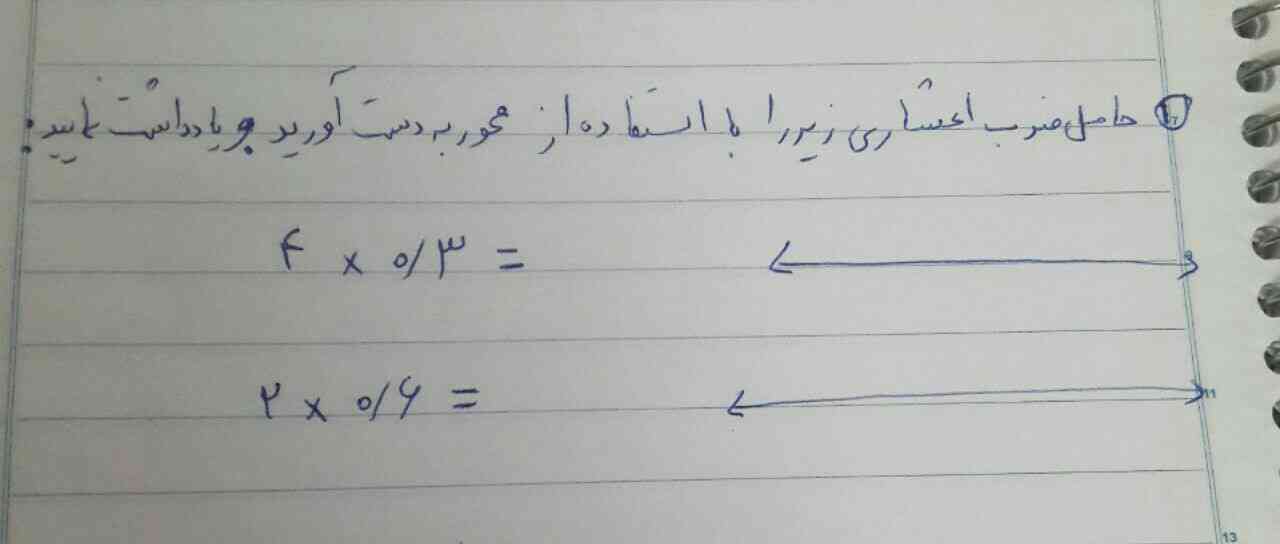 حاصل ضرب اعشاری زیر را با استفاده از محور به دست آورید و یادداشت نمایید:
۴ × ۰/۳ =
۲ × ۰/۶ =
11
13